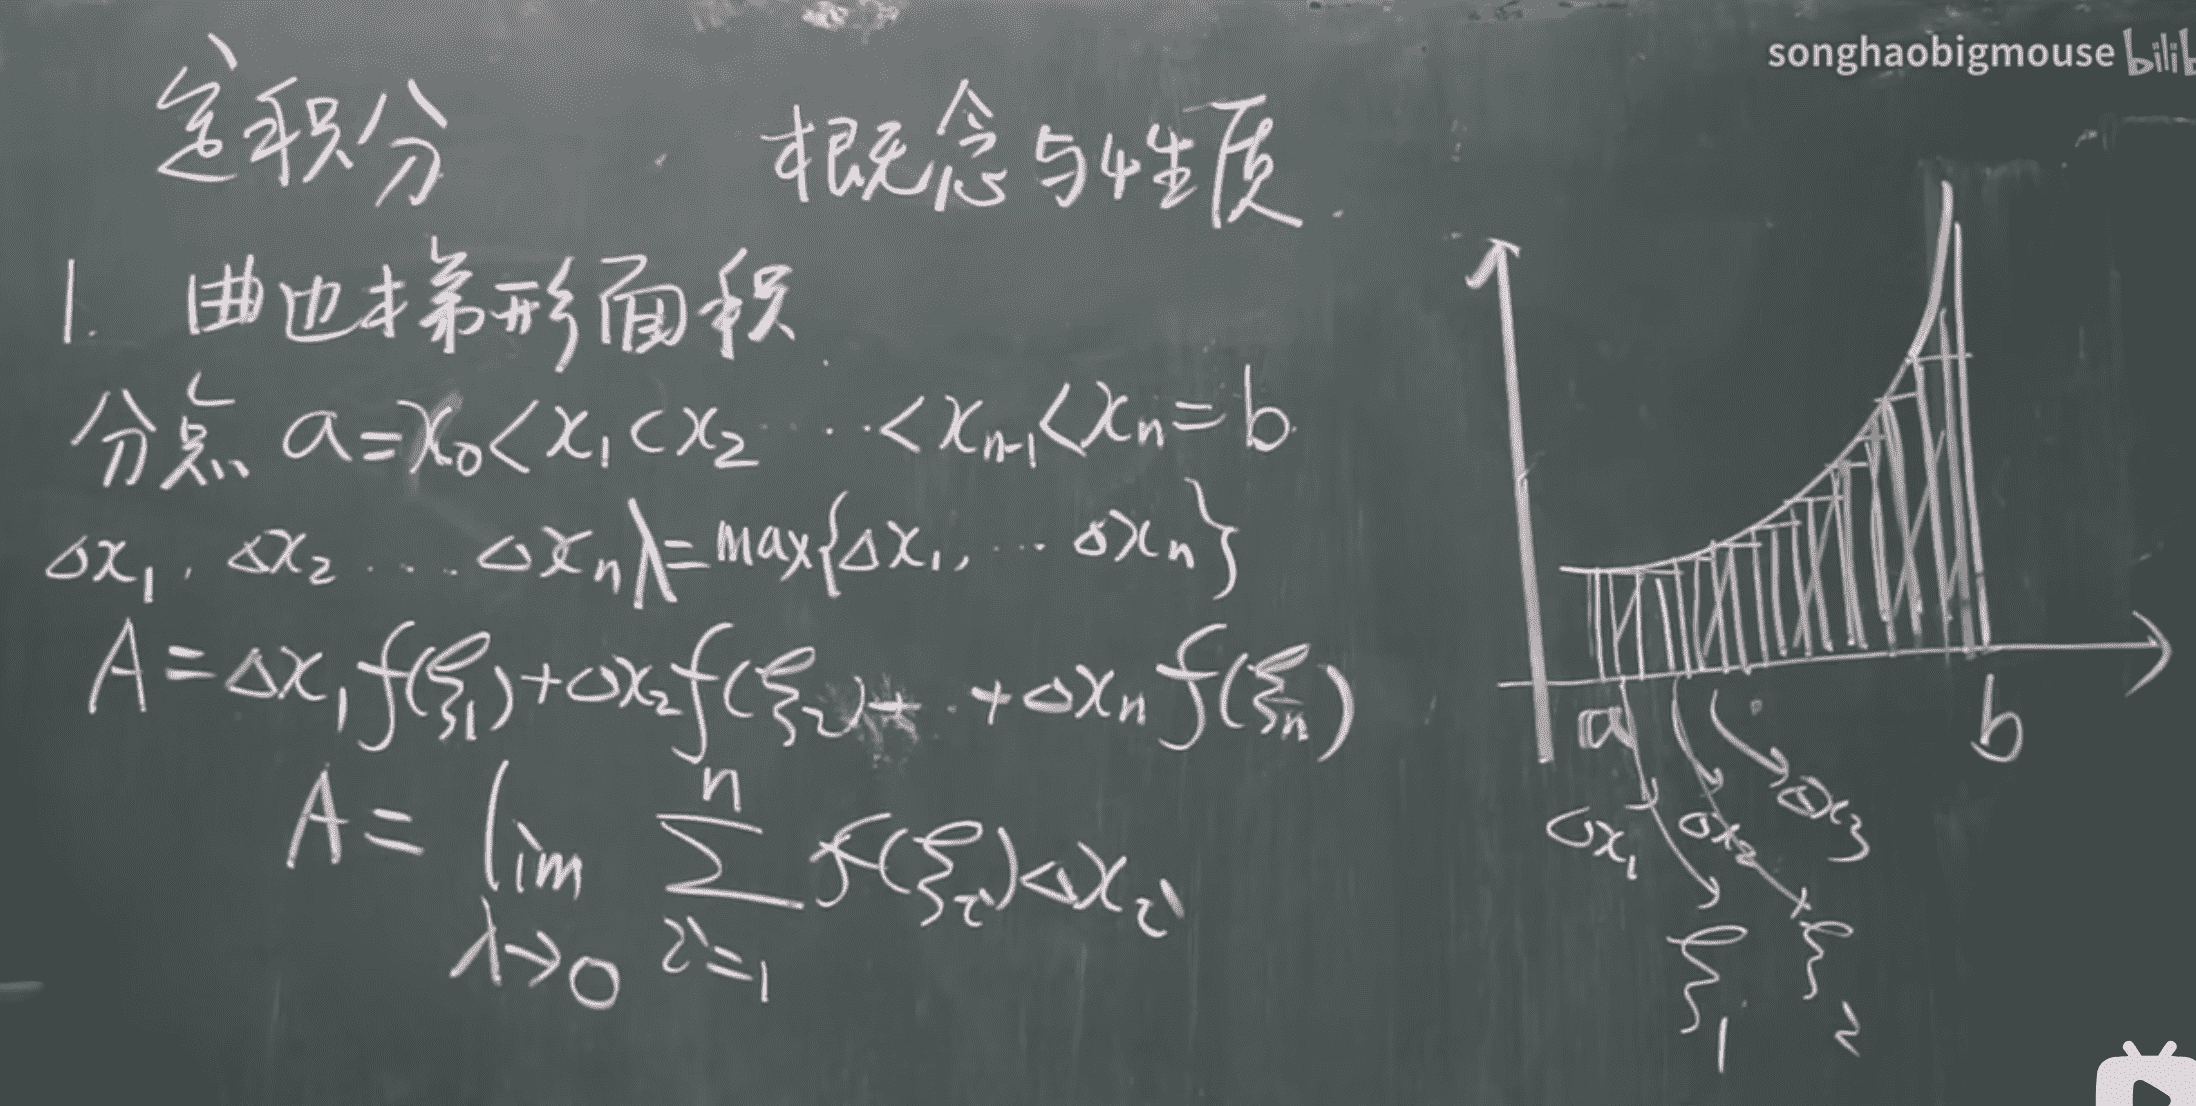 songhaobigmouse bilib
定积分 概念与性质
1. 曲边梯形面积
分点 a=x₀<x₁<x₂ ... <xₙ₋₁<xₙ=b
Δx₁, Δx₂ .... Δxₙ λ=max{Δx₁, ... Δxₙ}
A=Δx₁f(ξ₁)+Δx₂f(ξ₂)+ .. +Δxₙf(ξₙ)
n
A= lim ∑ f(ξᵢ)Δxᵢ
λ→0 i=1
a b
Δx₁ Δx₂ Δx₃
ξ₁ ξ₂